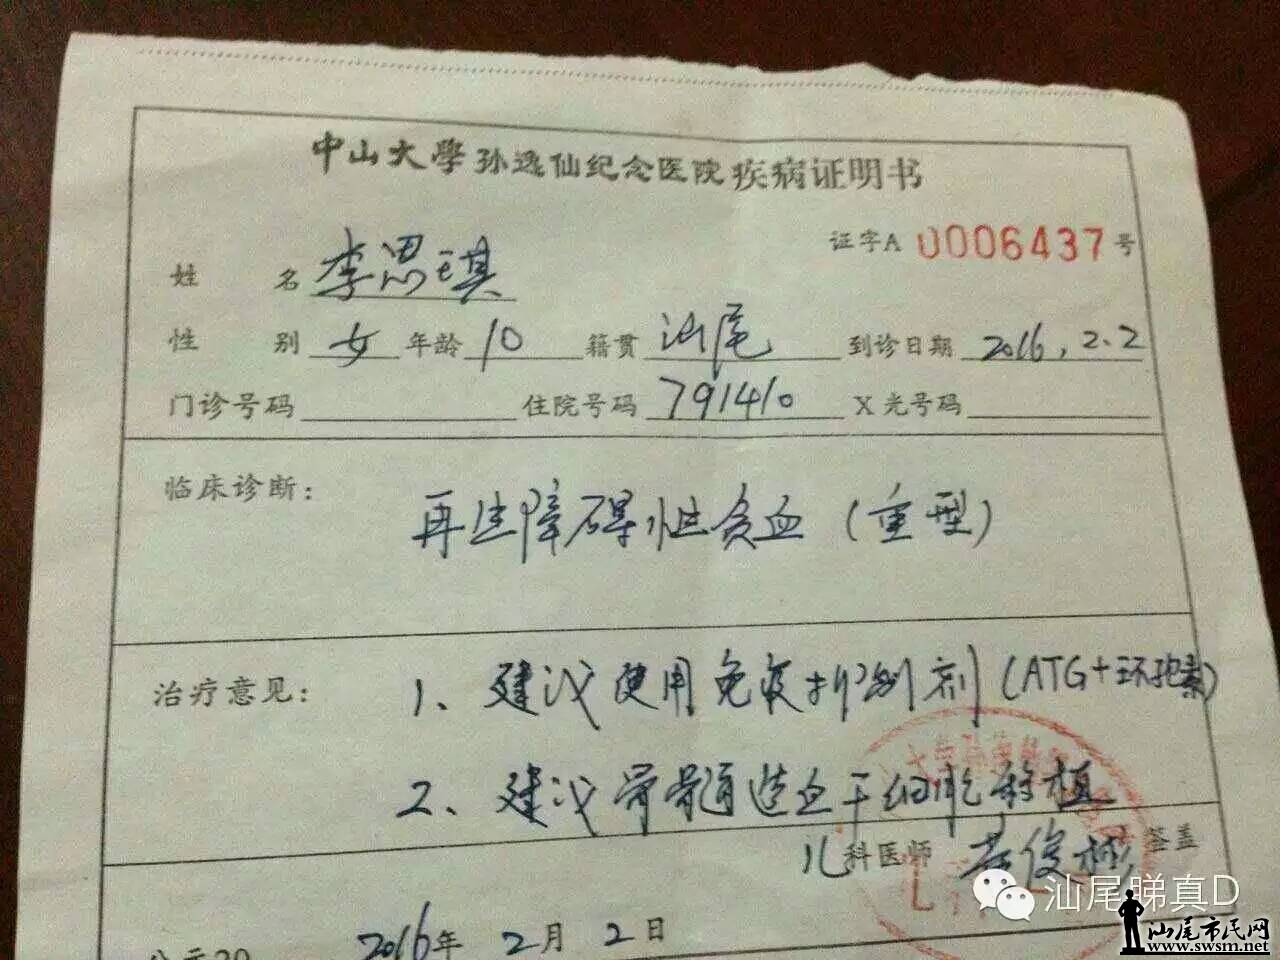 中山大學孙逸仙纪念医院疾病证明书
证字A 0006437号
姓 名 李思琪
性 别 女 年龄 10 籍贯 汕尾 到诊日期 2016.2.2
门诊号码 住院号码 791410 X光号码
临床诊断:
再生障碍性贫血(重型)
治疗意见:
1、建议使用免疫抑制剂(ATG+环孢素)
2、建议骨髓造血干细胞移植
儿科医师 俊 签盖
2016年 2月 2日
汕尾睇真D
汕尾市民网
www.swsm.net